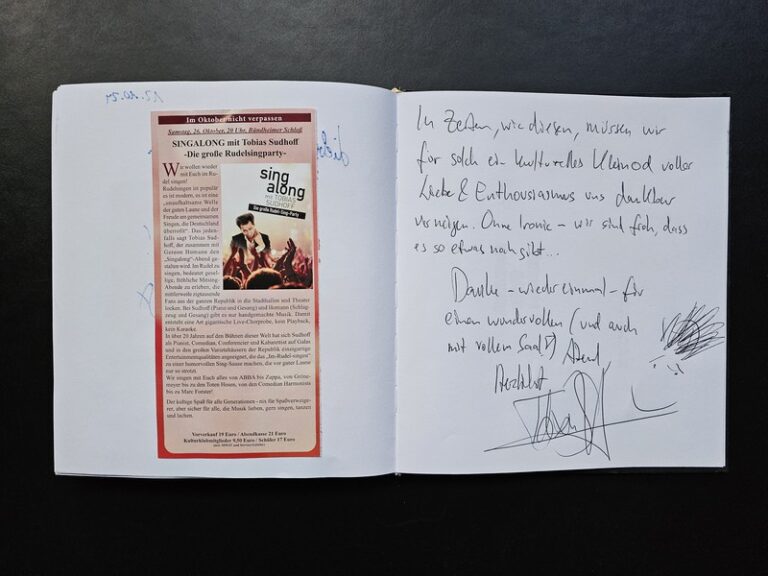 Im Oktober nicht verpassen
Samstag, 26. Oktober, 20 Uhr, Bündheimer Schloß
SINGALONG mit Tobias Sudhoff
-Die große Rudelsingparty-
Wir wollen wieder
mit Euch im Ru-
del singen!
Rudelsingen ist populär
es ist modern, es ist eine
„unaufhaltsame Welle
der guten Laune und der
Freude am gemeinsamen
Singen, die Deutschland
überrollt“. Das jeden-
falls sagt Tobias Sud-
hoff, der zusammen mit
Gereon Homann den
„Singalong“-Abend ge-
stalten wird. Im Rudel zu
singen, bedeutet gesel-
lige, fröhliche Mitsing-
Abende zu erleben, die
mittlerweile zigtausende
Fans aus der ganzen Republik in die Stadthallen und Theater
locken. Bei Sudhoff (Piano und Gesang) und Homann (Schlag-
zeug und Gesang) gibt es nur handgemachte Musik. Damit
entsteht eine Art gigantische Live-Chorprobe, kein Playback,
kein Karaoke.
In über 20 Jahren auf den Bühnen dieser Welt hat sich Sudhoff
als Pianist, Comedian, Conferencier und Kabarettist auf Galas
und in den großen Varietéhäusern der Republik einzigartige
Entertainmentqualitäten angeeignet, die das „Im-Rudel-singen“
zu einer humorvollen Sing-Sause machen, die vor guter Laune
nur so strotzt.
Wir singen mit Euch alles von ABBA bis Zappa, von Gröne-
meyer bis zu den Toten Hosen, von den Comedian Harmonists
bis zu Marc Forster!
Der kultige Spaß für alle Generationen - nix für Spaßverweige-
rer, aber sicher für alle, die Musik lieben, gern singen, tanzen
und lachen.
Vorverkauf 19 Euro / Abendkasse 21 Euro
Kulturklubmitglieder 9,50 Euro / Schüler 17 Euro
sing
along
MIT TOBIAS
SUDHOFF
Die große Rudel-Sing-Party
In Zeiten, wie diesen, müssen wir
für solch ein kulturelles Kleinod voller
Liebe & Enthousiasmus uns dankbar
verneigen. Ohne Ironie – wir sind froh, dass
es so etwas noch gibt...
Danke – wieder einmal – für
einen wundervollen (und auch
mit vollem Saal) Abend
Herzlichst